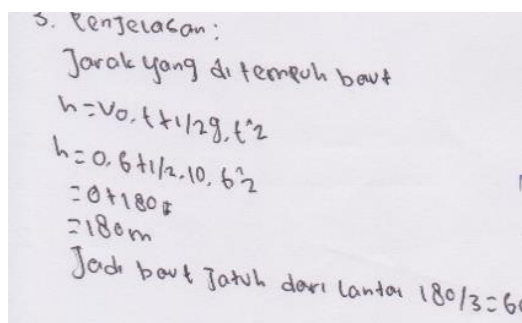 3. Penjelasan:
Jarak yang di tempuh baut
h=Vo.t+1/2g.t^2
h=0.6+1/2.10.6^2
=0+180
=180m
Jadi baut Jatuh dari lantai 180/3=60